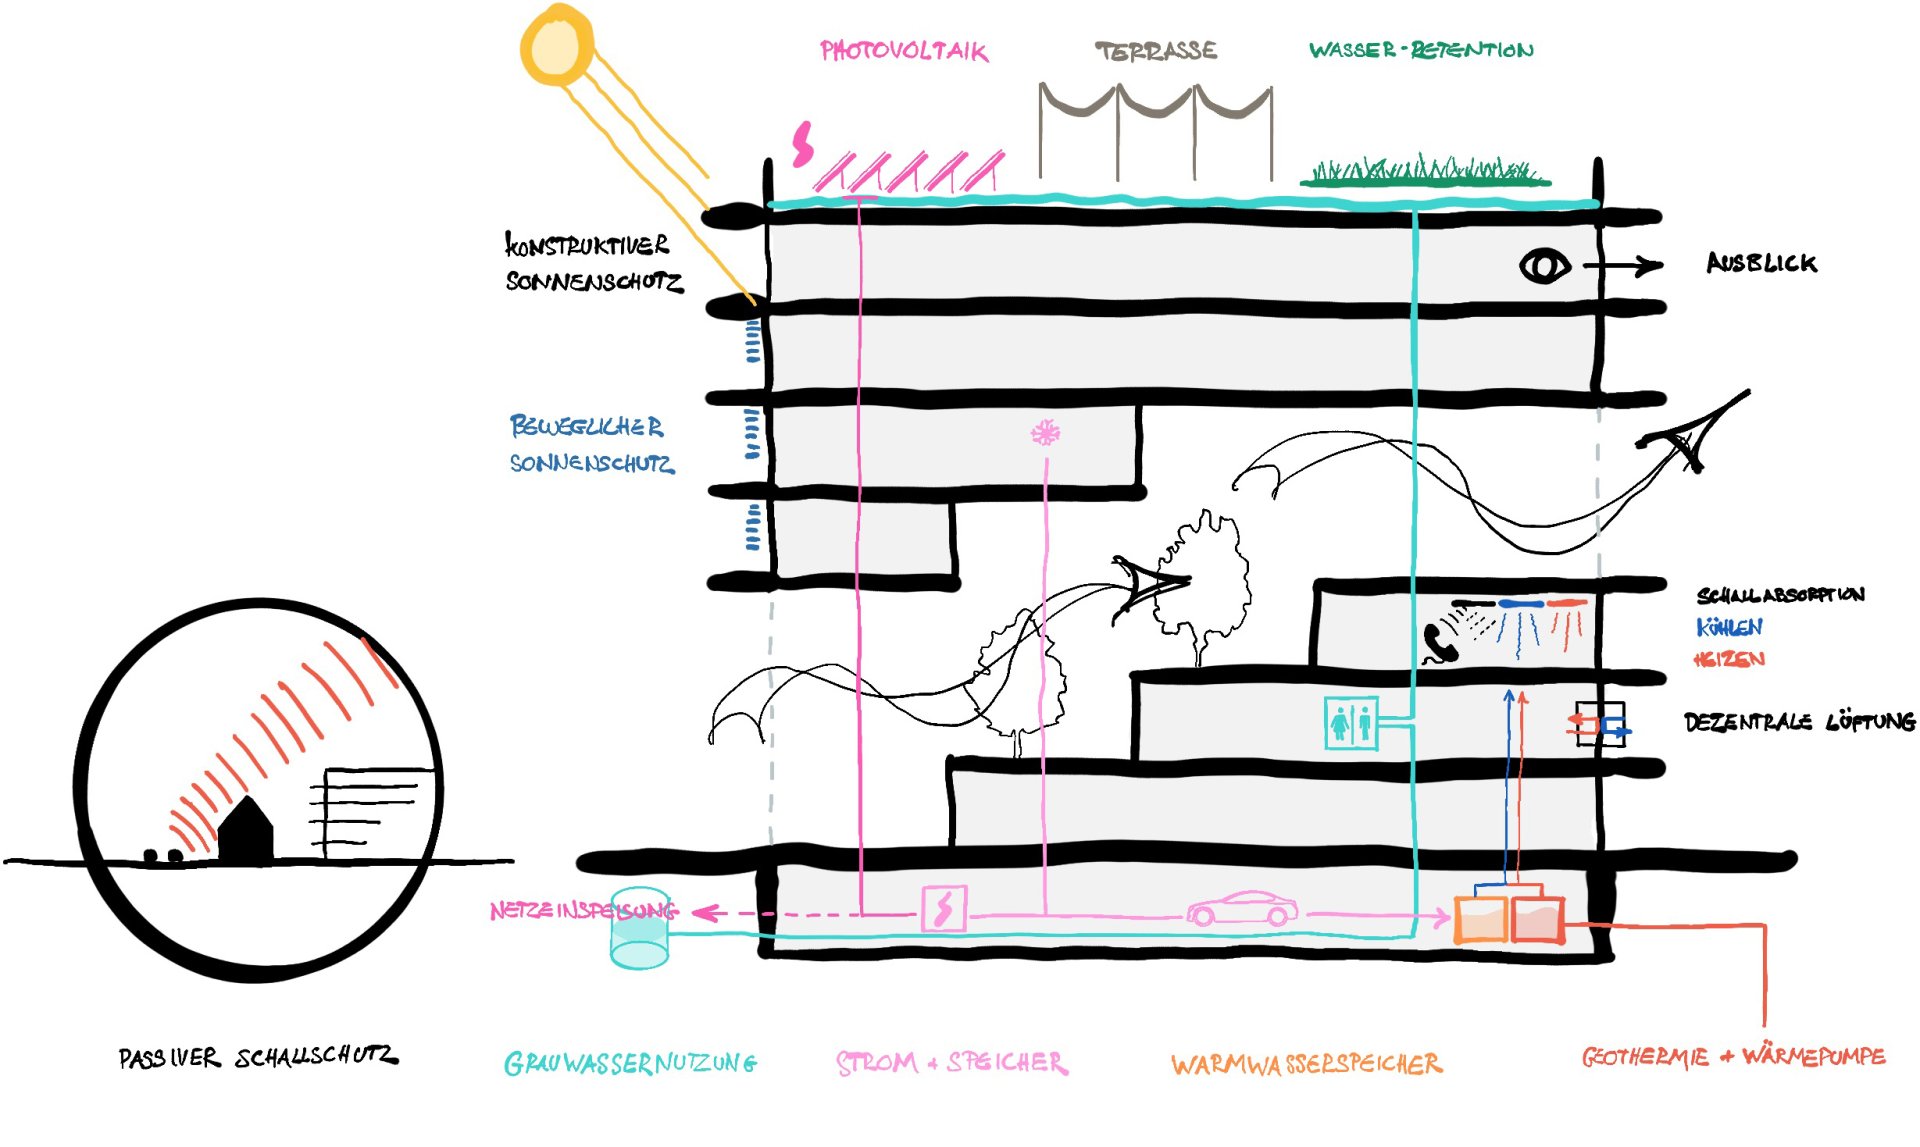 PHOTOVOLTAIK
TERRASSE
WASSER-RETENTION
KONSTRUKTIVER
SONNENSCHUTZ
AUSBLICK
BEWEGLICHER
SONNENSCHUTZ
SCHALLABSORPTION
KÜHLEN
HEIZEN
DEZENTRALE LÜFTUNG
NETZEINSPEISUNG
PASSIVER SCHALLSCHUTZ
GRAUWASSERNUTZUNG
STROM + SPEICHER
WARMWASSERSPEICHER
GEOTHERMIE + WÄRMEPUMPE